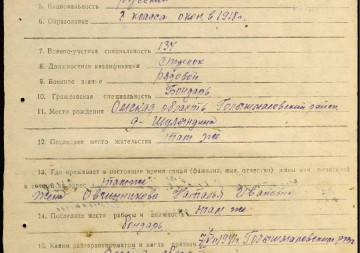 5. Национальность русский
6. Образование 2 класса окон в 1918 г.
7. Военно-учетная специальность 134
8. Должностная квалификация стрелок
9. Военное звание рядовой
10. Гражданская специальность Бондарь
11. Место рождения Омская область Голышмановский район
д-
12. Последнее место жительства там же
13. Где проживают в настоящее время семья (фамилия, имя, отчество) жены или
также
жена Овчинникова Наталья Ивановна
14. Последнее место работы и должность там же
бондарь
15. Каким райвоенкоматом и когда призван 1941 г. Голышмановским